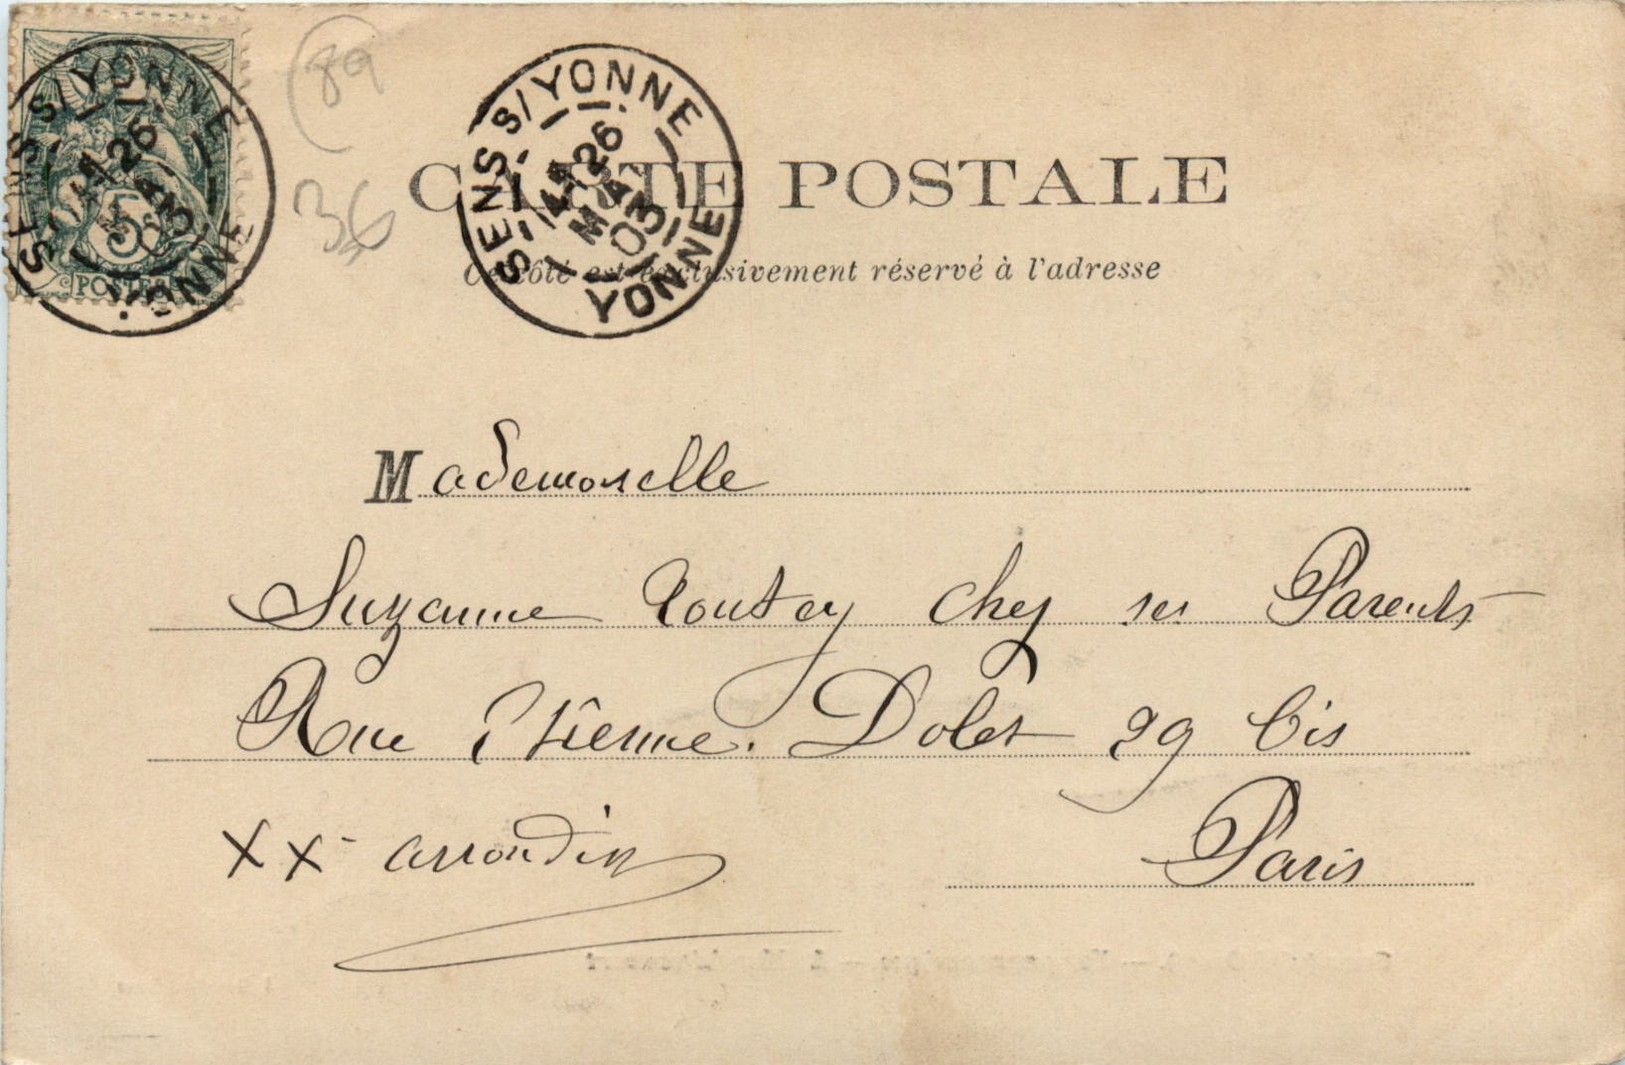 (89
36
CARTE POSTALE
Ce côté est exclusivement réservé à l'adresse
SENS S/YONNE
YONNE
26
MAI
03
SENS S/YONNE
YONNE
26
03
5
POSTES
Mademoiselle
Suzanne chez ses Parents
Rue Etienne. Dolet 29 bis
XX arrondin
Paris